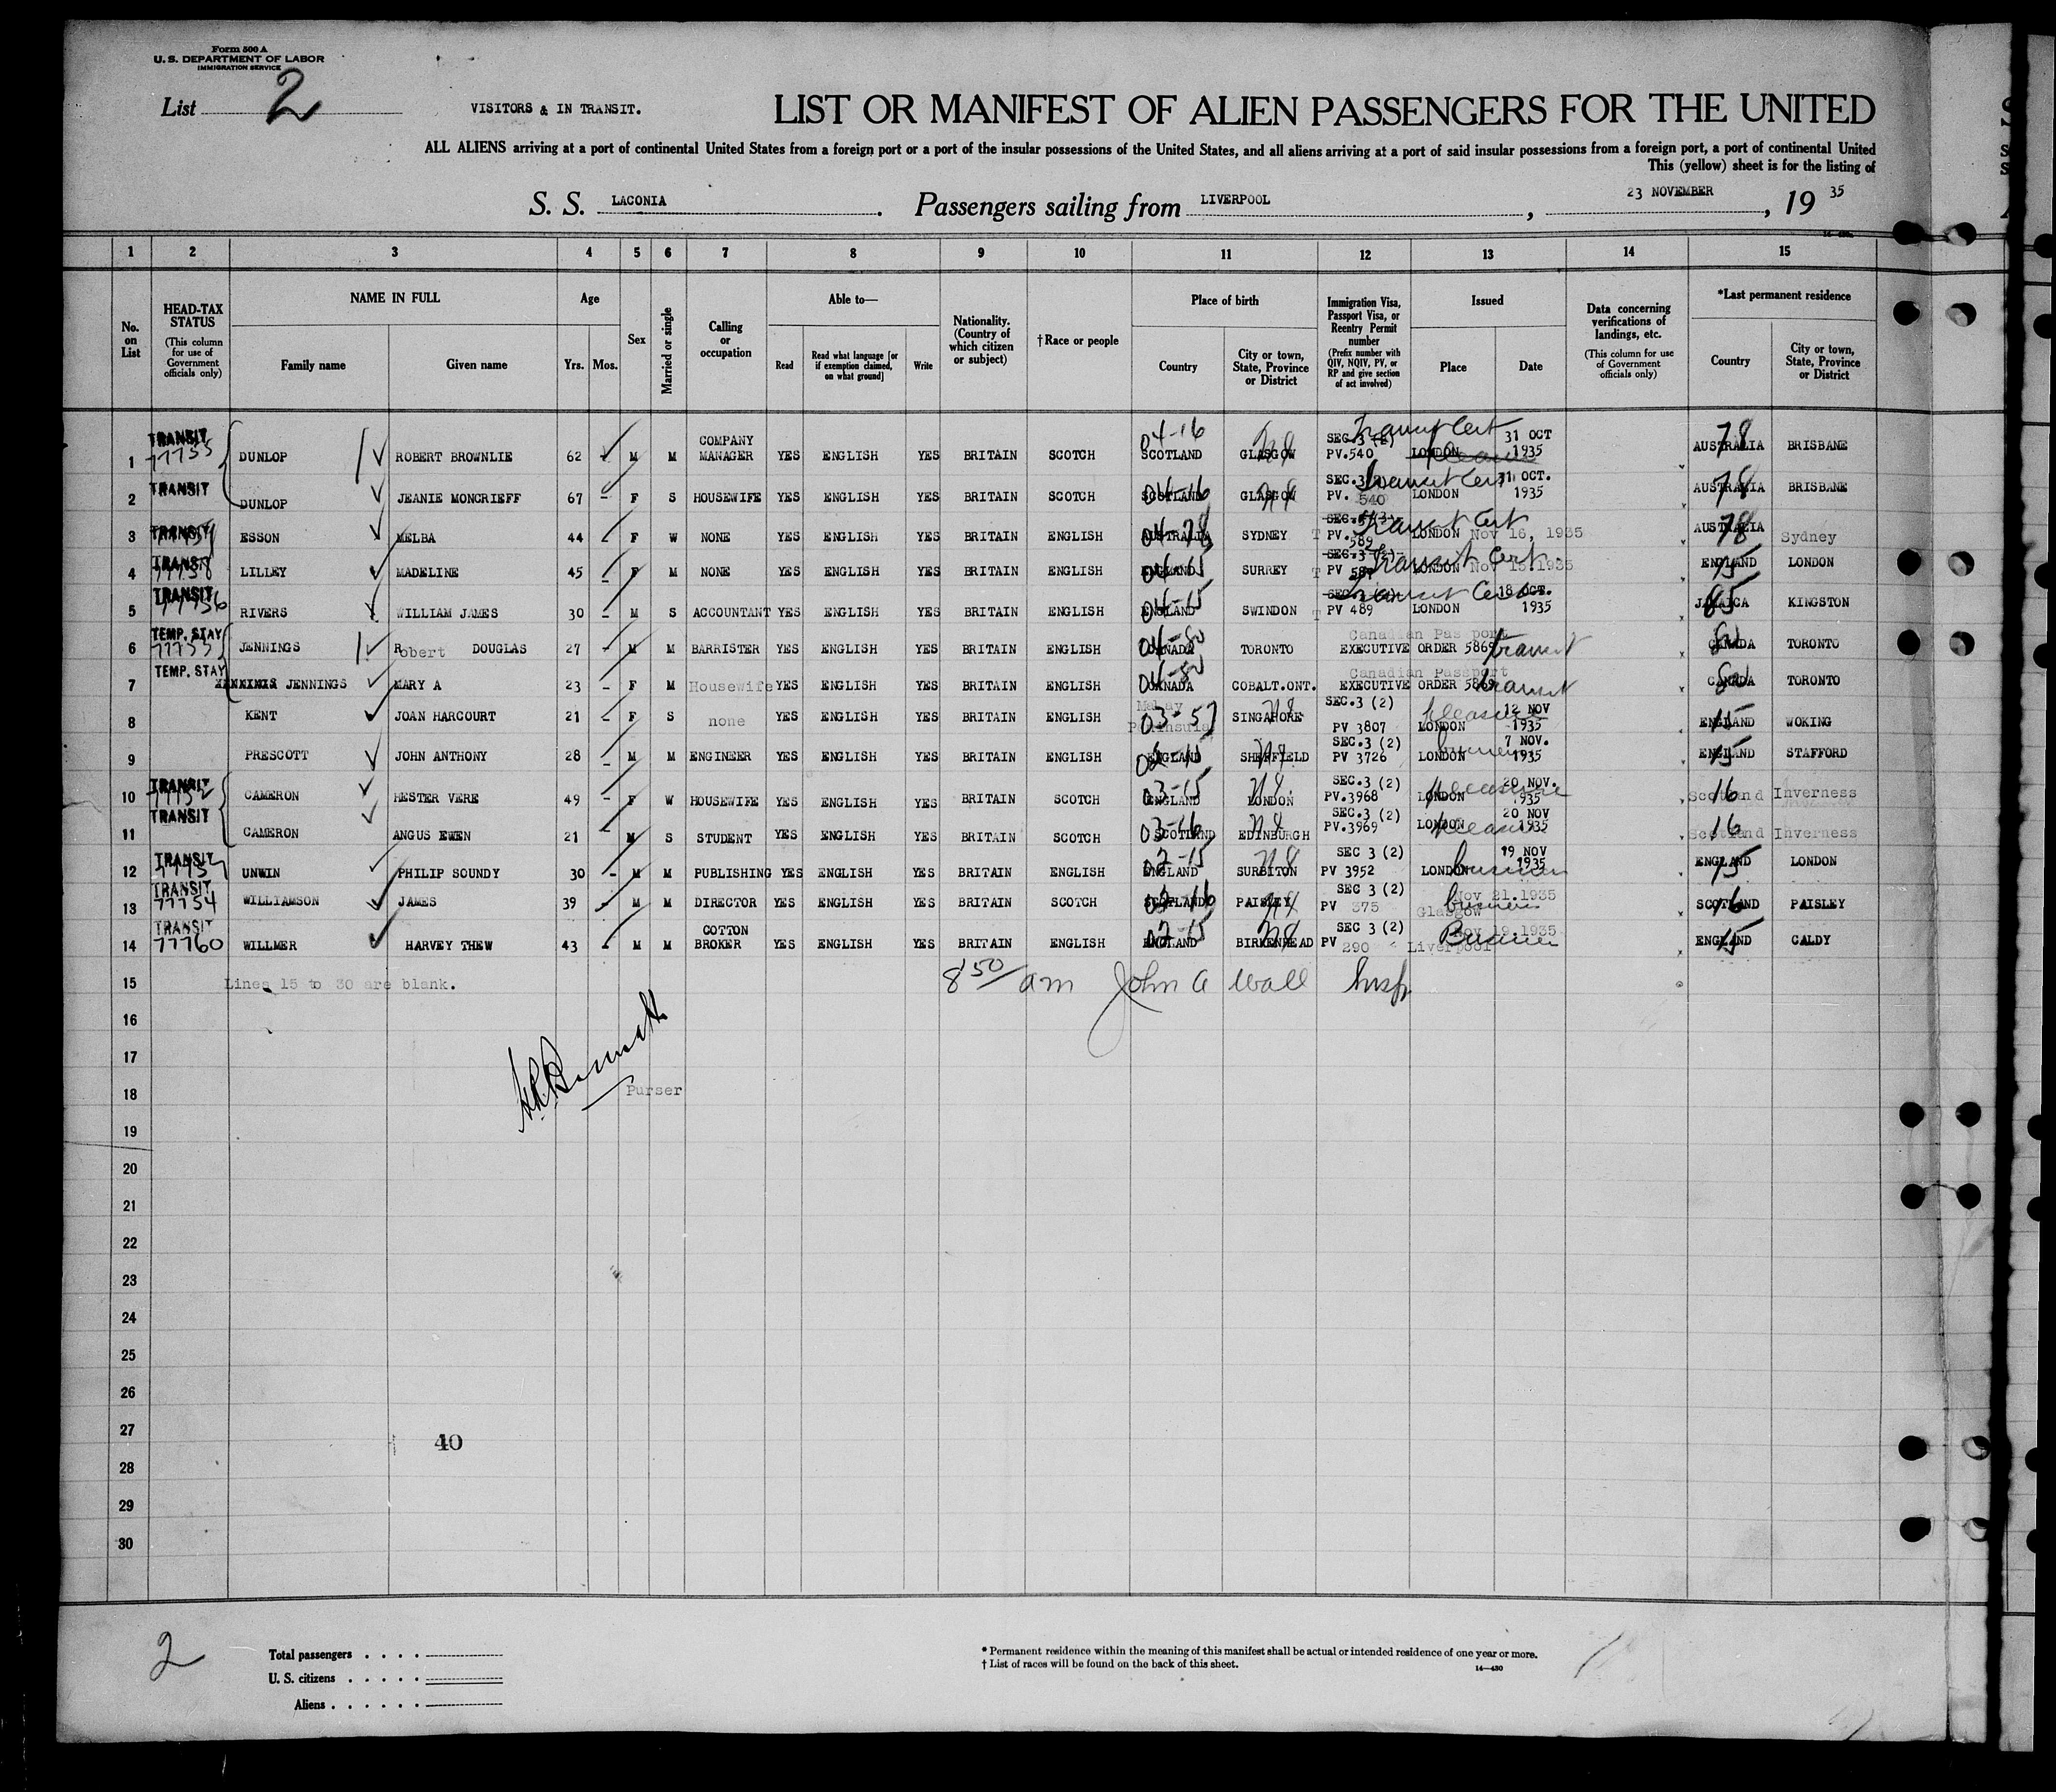 Form 500 A
U. S. DEPARTMENT OF LABOR
IMMIGRATION SERVICE
List 2
VISITORS & IN TRANSIT.
LIST OR MANIFEST OF ALIEN PASSENGERS FOR THE UNITED
ALL ALIENS arriving at a port of continental United States from a foreign port or a port of the insular possessions of the United States, and all aliens arriving at a port of said insular possessions from a foreign port, a port of continental United
This (yellow) sheet is for the listing of
S. S. LACONIA. Passengers sailing from LIVERPOOL, 23 NOVEMBER, 19 35
1 2 3 4 5 6 7 8 9 10 11 12 13 14 15
No. on List
HEAD-TAX STATUS (This column for use of Government officials only)
NAME IN FULL Family name Given name
Age Yrs. Mos.
Sex
Married or single
Calling or occupation
Able to— Read Read what language [or if exemption claimed, on what ground] Write
Nationality. (Country of which citizen or subject)
†Race or people
Place of birth Country City or town, State, Province or District
Immigration Visa, Passport Visa, or Reentry Permit number (Prefix number with QIV, NQIV, PV, or RP and give section of act involved)
Issued Place Date
Data concerning verifications of landings, etc. (This column for use of Government officials only)
*Last permanent residence Country City or town, State, Province or District
1 TRANSIT 77755 DUNLOP ROBERT BROWNLIE 62 M M COMPANY MANAGER YES ENGLISH YES BRITAIN SCOTCH 04-16 SCOTLAND GLASGOW SEC.3 (2) PV.540 Transit Cert LONDON 31 OCT 1935 AUSTRALIA 78 BRISBANE
2 TRANSIT DUNLOP JEANIE MONCRIEFF 67 - F S HOUSEWIFE YES ENGLISH YES BRITAIN SCOTCH SCOTLAND 04-16 GLASGOW PV. 540 Transit Cert LONDON 31 OCT. 1935 AUSTRALIA 78 BRISBANE
3 TRANSIT ESSON MELBA 44 - F W NONE YES ENGLISH YES BRITAIN ENGLISH AUSTRALIA 04-78 SYDNEY T PV. 589 Transit Cert LONDON Nov 16, 1935 AUSTRALIA 78 Sydney
4 TRANSIT 77758 LILLEY MADELINE 45 - F M NONE YES ENGLISH YES BRITAIN ENGLISH ENGLAND 04-15 SURREY SEC.3 (2) T PV Transit Cert LONDON Nov 15.1935 ENGLAND 15 LONDON
5 TRANSIT 77756 RIVERS WILLIAM JAMES 30 - M S ACCOUNTANT YES ENGLISH YES BRITAIN ENGLISH ENGLAND 04-15 SWINDON T PV 489 Transit Cert LONDON 18 OCT. 1935 JAMAICA 85 KINGSTON
6 TEMP. STAY 77753 JENNINGS Robert DOUGLAS 27 - M M BARRISTER YES ENGLISH YES BRITAIN ENGLISH CANADA 04-80 TORONTO Canadian Pas port EXECUTIVE ORDER 5869 transit CANADA 80 TORONTO
7 TEMP. STAY JENNINGS MARY A 23 - F M Housewife YES ENGLISH YES BRITAIN ENGLISH CANADA 04-80 COBALT.ONT. Canadian Passport EXECUTIVE ORDER 5869 transit CANADA 80 TORONTO
8 KENT JOAN HARCOURT 21 - F S none YES ENGLISH YES BRITAIN ENGLISH Malay Peninsula 03-57 SINGAPORE SEC.3 (2) PV 3807 LONDON Pleasure 12 NOV 1935 ENGLAND 15 WOKING
9 PRESCOTT JOHN ANTHONY 28 - M M ENGINEER YES ENGLISH YES BRITAIN ENGLISH ENGLAND SHEFFIELD SEC.3 (2) PV 3726 LONDON business 7 NOV. 1935 ENGLAND 15 STAFFORD
10 TRANSIT 77752 CAMERON HESTER VERE 49 - F W HOUSEWIFE YES ENGLISH YES BRITAIN SCOTCH 03-15 ENGLAND LONDON SEC.3 (2) PV.3968 LONDON Pleasure 20 NOV. 1935 Scotland 16 Inverness
11 TRANSIT CAMERON ANGUS EWEN 21 - M S STUDENT YES ENGLISH YES BRITAIN SCOTCH 03-16 SCOTLAND EDINBURGH SEC.3 (2) PV.3969 LONDON Pleasure 20 NOV 1935 Scotland 16 Inverness
12 TRANSIT UNWIN PHILIP SOUNDY 30 - M M PUBLISHING YES ENGLISH YES BRITAIN ENGLISH 02-15 ENGLAND SURBITON SEC 3 (2) PV 3952 LONDON business 19 NOV 1935 ENGLAND 15 LONDON
13 TRANSIT 77754 WILLIAMSON JAMES 39 - M M DIRECTOR YES ENGLISH YES BRITAIN SCOTCH SCOTLAND 02-16 PAISLEY SEC 3 (2) PV 375 Glasgow business Nov 21.1935 SCOTLAND 16 PAISLEY
14 TRANSIT 77760 WILLMER HARVEY THEW 43 - M M COTTON BROKER YES ENGLISH YES BRITAIN ENGLISH 02-15 ENGLAND BIRKENHEAD SEC 3 (2) PV 290 Liverpool Business Nov 19.1935 ENGLAND 15 CALDY
15 Lines 15 to 30 are blank. 8 50 am John A Wall Insp
16
17
18 Purser
19
20
21
22
23
24
25
26
27 40
28
29
30
2
Total passengers
U. S. citizens
Aliens
* Permanent residence within the meaning of this manifest shall be actual or intended residence of one year or more.
† List of races will be found on the back of this sheet.
14—430